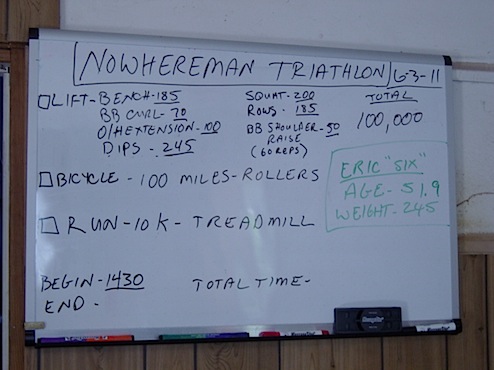 NOWHEREMAN TRIATHLON 6-3-11
LIFT-BENCH-185 SQUAT-200 TOTAL
BB CURL-70 ROWS-185 100,000
O/H EXTENSION-100 BB SHOULDER-50
DIPS-245 RAISE
(60 REPS)
ERIC "SIX"
BICYCLE - 100 MILES-ROLLERS
AGE-51.9
WEIGHT-245
RUN-10K-TREADMILL
BEGIN-1430 TOTAL TIME-
END-